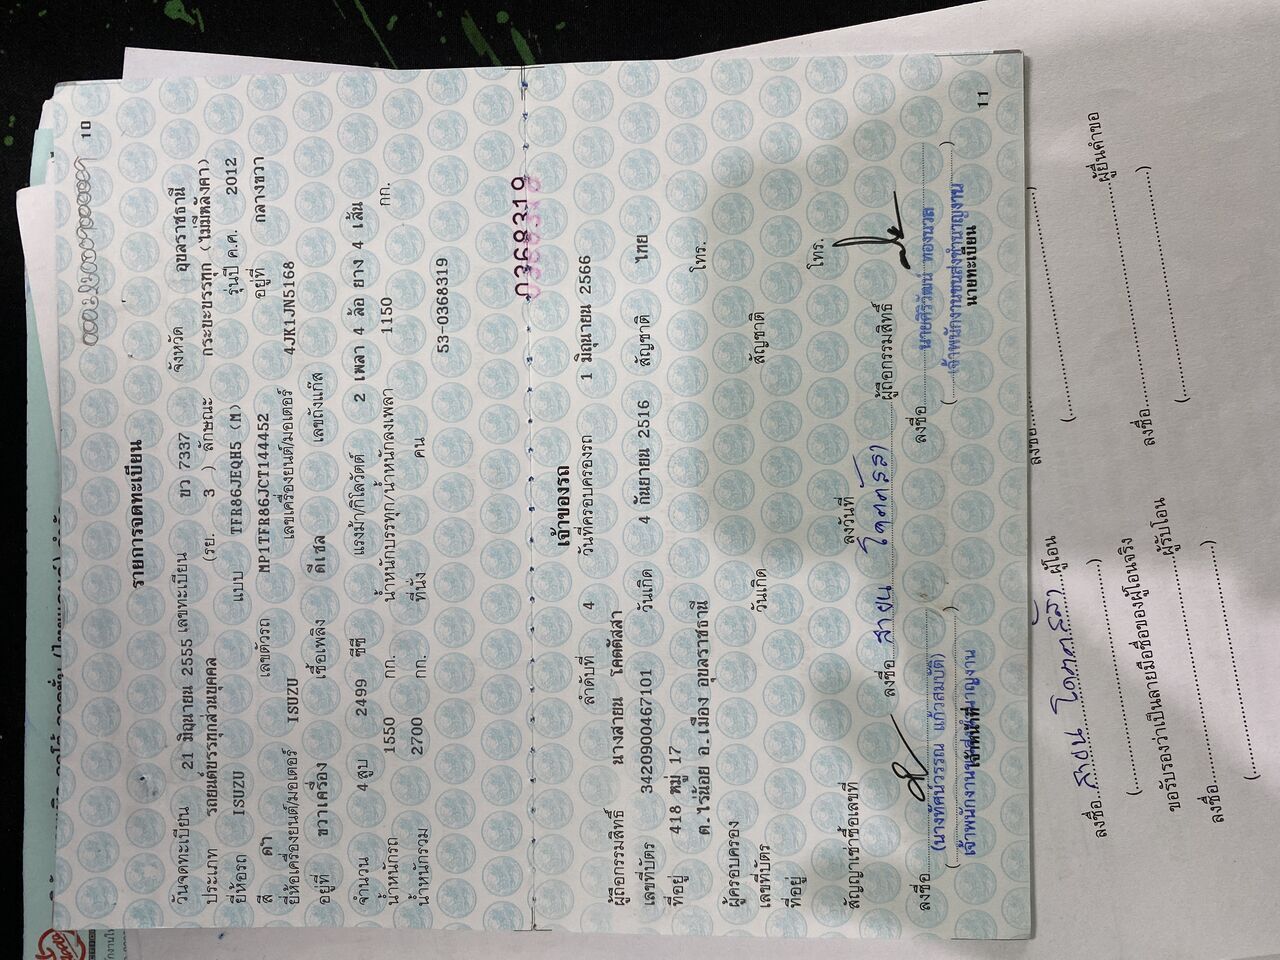 10
รายการจดทะเบียน
วันจดทะเบียน 21 มิถุนายน 2555 เลขทะเบียน ขว 7337 จังหวัด อุบลราชธานี
ประเภท รถยนต์บรรทุกส่วนบุคคล (รย. 3 ) ลักษณะ กระบะบรรทุก (ไม่มีหลังคา)
ยี่ห้อรถ ISUZU แบบ TFR86JEQH5 (M) รุ่นปี ค.ศ. 2012
สี ดำ เลขตัวรถ MP1TFR86JCT144452 อยู่ที่ กลางขวา
ยี่ห้อเครื่องยนต์/มอเตอร์ ISUZU เลขเครื่องยนต์/มอเตอร์ 4JK1JN5168
อยู่ที่ ขวาเครื่อง เชื้อเพลิง ดีเซล เลขถังแก๊ส
จำนวน 4 สูบ 2499 ซีซี แรงม้า/กิโลวัตต์ 2 เพลา 4 ล้อ ยาง 4 เส้น
น้ำหนักรถ 1550 กก. น้ำหนักบรรทุก/น้ำหนักลงเพลา 1150 กก.
น้ำหนักรวม 2700 กก. ที่นั่ง คน
53-0368319
0368319
เจ้าของรถ
ลำดับที่ 4 วันที่ครอบครองรถ 1 มิถุนายน 2566
ผู้ถือกรรมสิทธิ์ นางสายยน โคตตัสสา
เลขที่บัตร 3420900467101 วันเกิด 4 กันยายน 2516 สัญชาติ ไทย
ที่อยู่ 418 หมู่ 17
ต.ไร่น้อย อ.เมือง อุบลราชธานี โทร.
ผู้ครอบครอง
เลขที่บัตร วันเกิด สัญชาติ
ที่อยู่
โทร.
สัญญาเช่าซื้อเลขที่ ลงวันที่
ลงชื่อ สายยน โคตตัสสา ผู้ถือกรรมสิทธิ์
ลงชื่อ ลงชื่อ นายศิริวัฒน์ ทองนวล
(นางทัศน์วรรณ แก้วสมบัติ)
เจ้าพนักงานขนส่งชำนาญงาน เจ้าพนักงานขนส่งชำนาญงาน
เจ้าหน้าที่ นายทะเบียน
11
ลงชื่อ สายยน โคตตัสสา ผู้โอน ลงชื่อ
(............) (............)
ขอรับรองว่าเป็นลายมือชื่อของผู้โอนจริง
ลงชื่อ............ผู้รับโอน ลงชื่อ............ผู้ยื่นคำขอ
(............) (............)